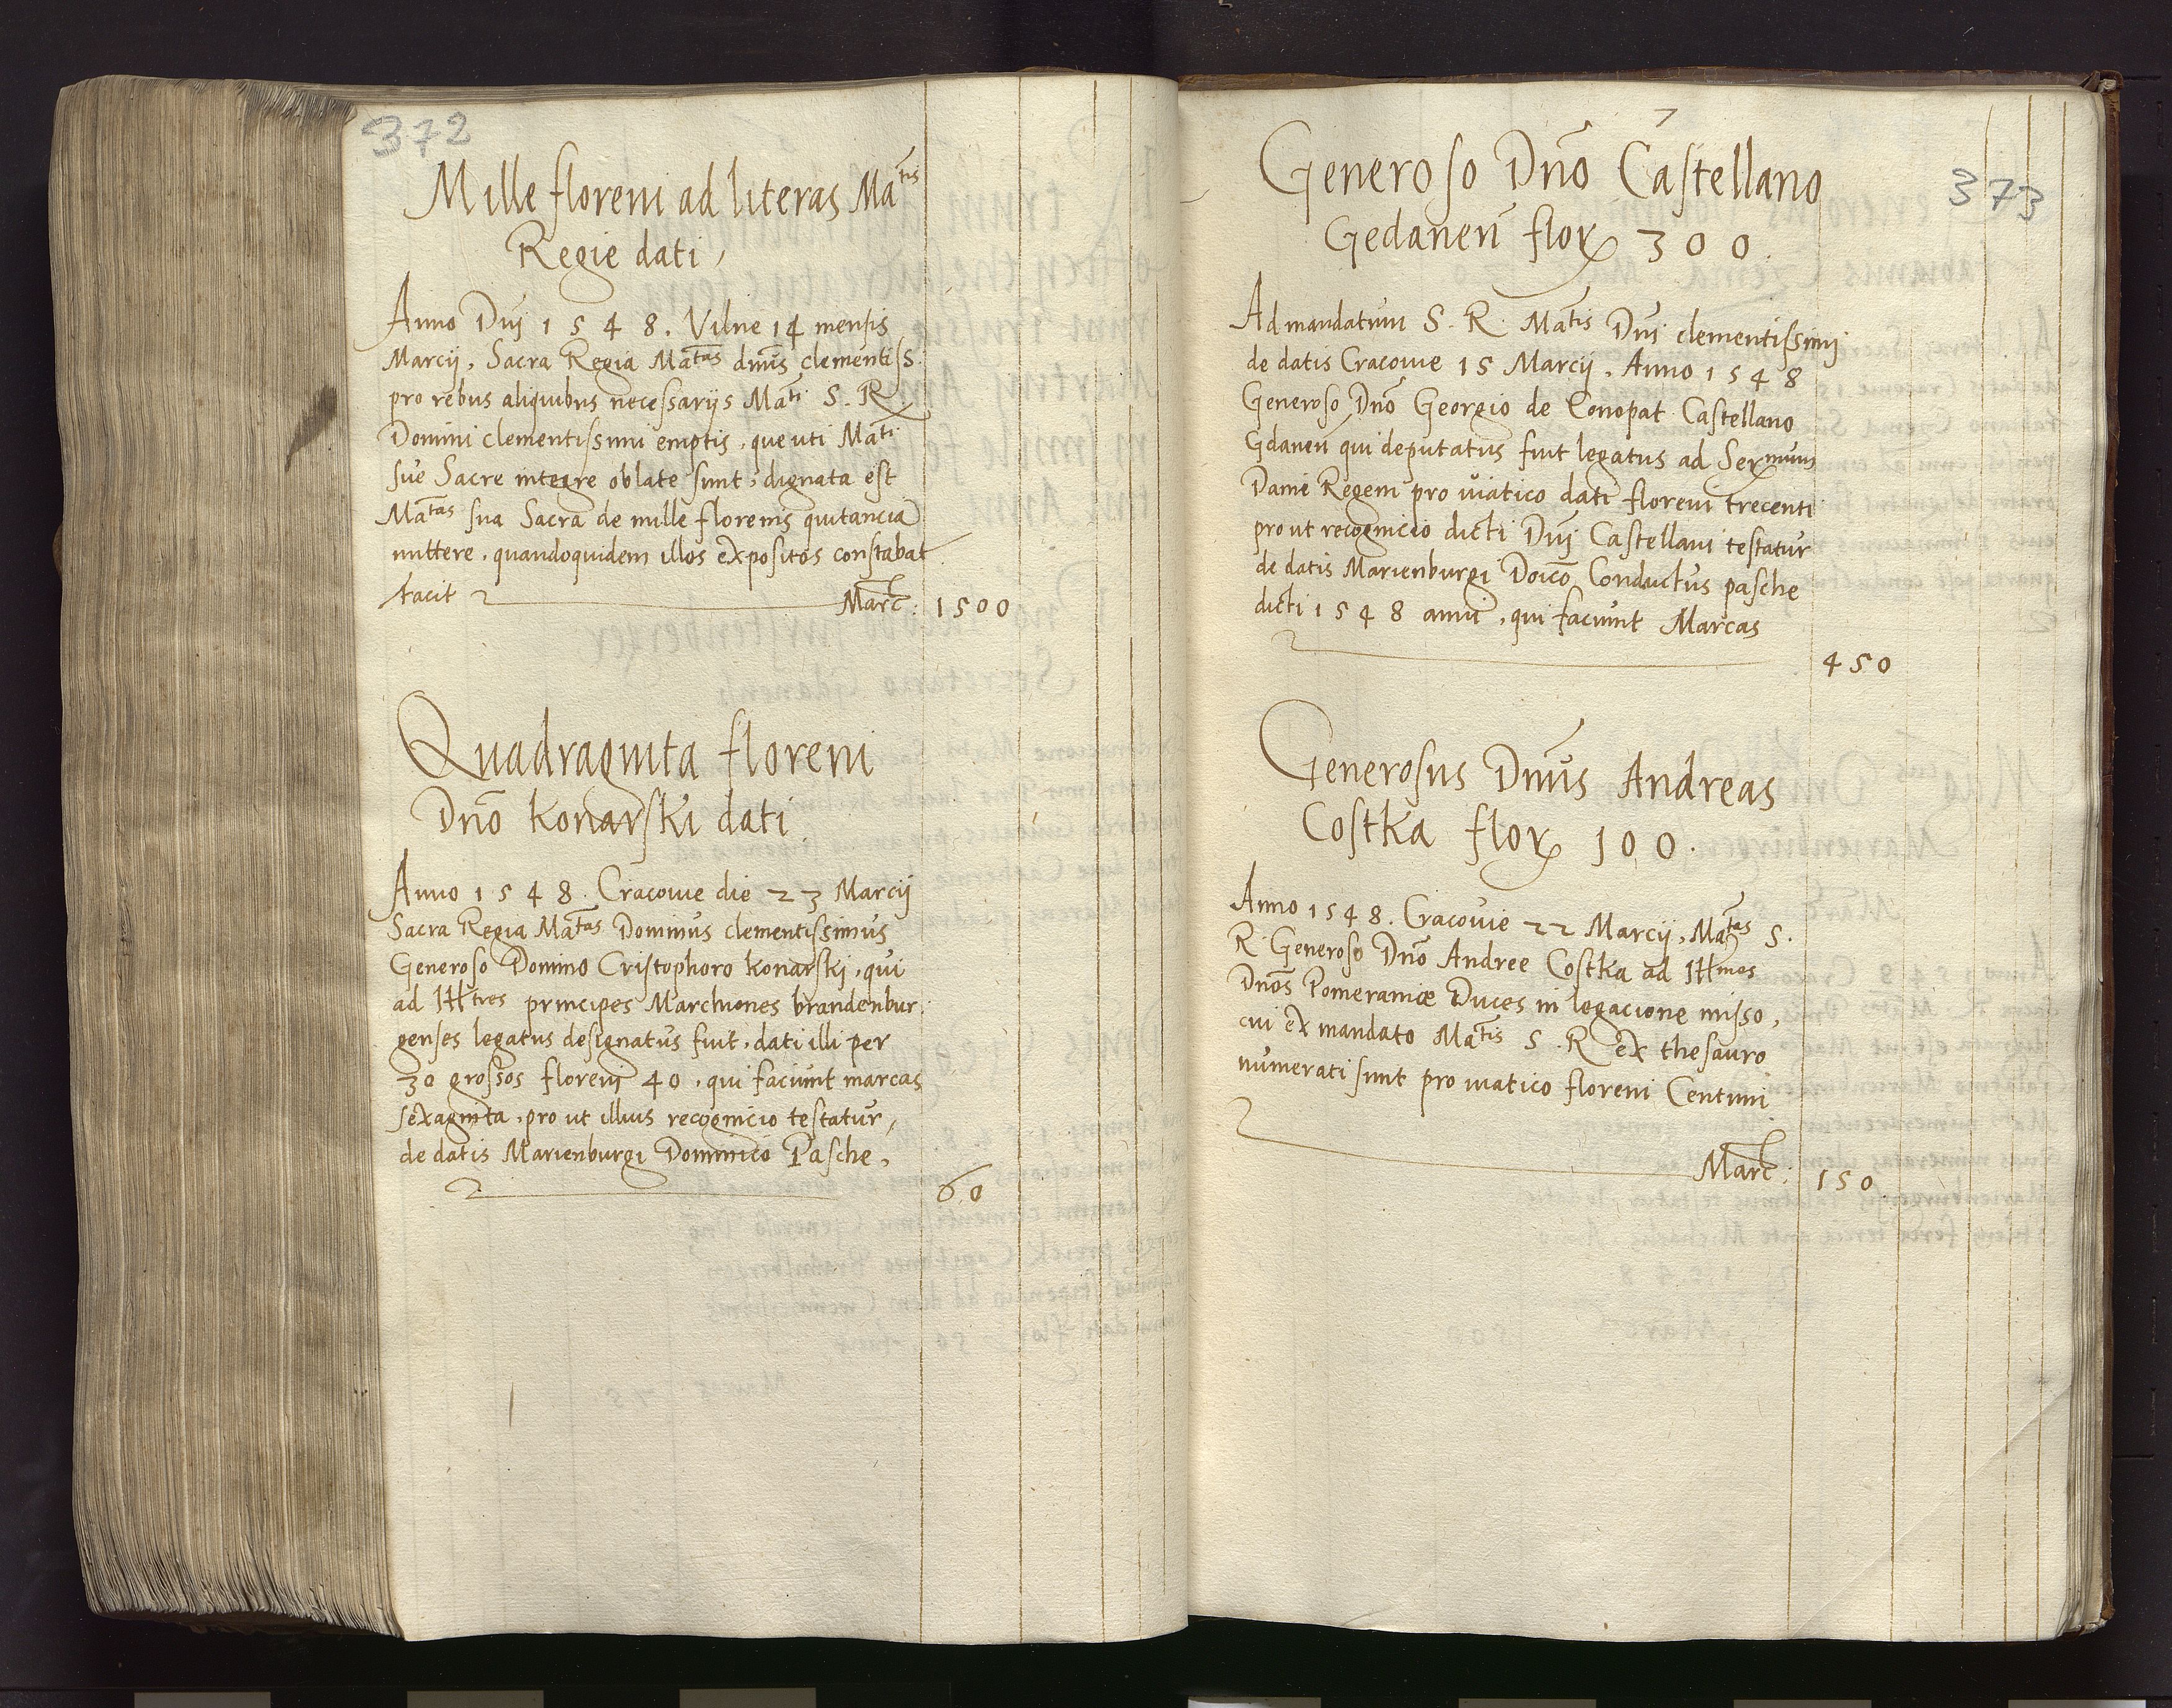 372
Mille floreni ad literas Ma^tis
Regie dati,
Anno Dnj 1548. Vilne 14 mensis
Marcij, Sacra Regia Ma^tas dnus clementiss.
pro rebus aliquibus necessarijs Ma^ti S. R.
Domini clementissimi emptis, que uti Ma^ti
sue Sacre integre oblate sunt, dignata est
Ma^tas sua Sacra de mille florenis quitancia
mittere, quandoquidem illos expositos constabat
facit Marc: 1500
Quadraginta floreni
Dno Konarski dati
Anno 1548. Cracovie die 23 Marcij
Sacra Regia Ma^tas Dominus clementissimus
Generoso Domino Cristophoro Konarskj, qui
ad Ill^tres principes Marchiones brandenbur.
genses legatus designatus fuit, dati illi per
30 grossos florenj 40, qui faciunt marcas
sexaginta, pro ut illius recognicio testatur,
de datis Marienburgi Dominico Pasche,
60
373
Generoso Dno Castellano
Gedanen flor 300.
Ad mandatum S. R. Ma^tis Dni clementissimj
de datis Cracovie 15 Marcij, Anno 1548
Generoso Dno Georgio de Conopat Castellano
Gdanen qui deputatus fuit legatus ad Ser^mum
Danie Regem pro viatico dati floreni trecenti
prout recognicio dicti Dnj Castellani testatur
de datis Marienburgi Doico Conductus pasche
dicti 1548 anni, qui faciunt Marcas
450
Generosus Dnus Andreas
Costka flor 100.
Anno 1548. Cracovie 22 Marcij, Ma^tas S.
R. Generoso Dno Andree Costka ad Ill^mos
Dnos Pomeraniæ Duces in legacione misso,
cui ex mandato Ma^tis S. R ex thesauro
numerati sunt pro viatico floreni Centum
Marc: 150